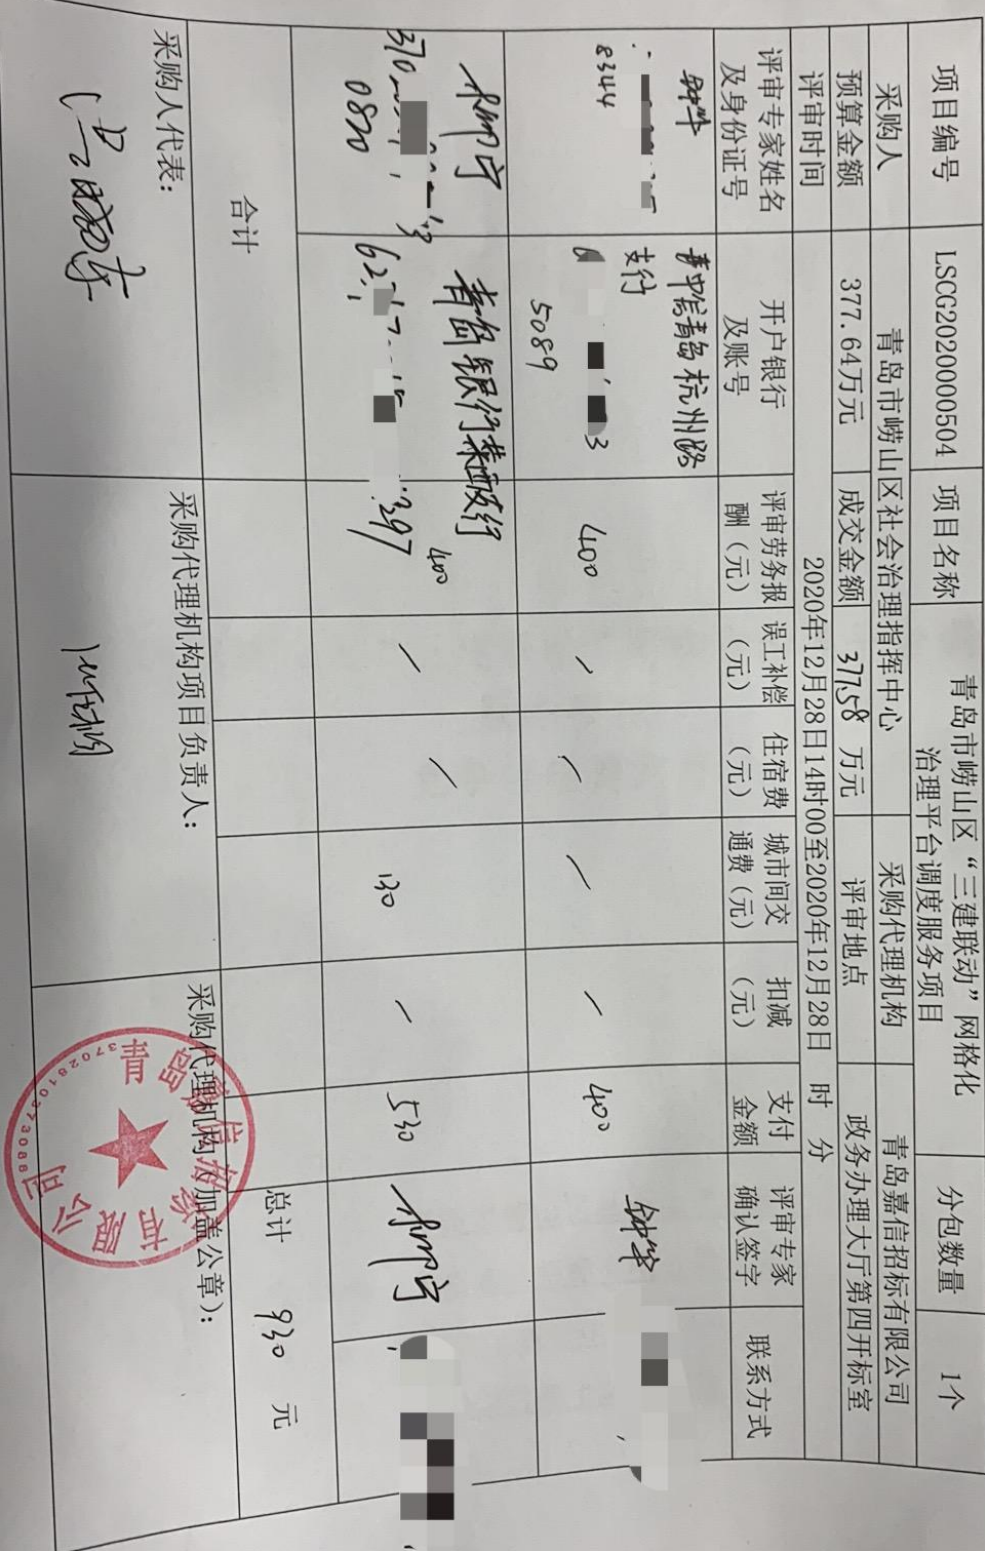 项目编号 LSCG2020000504 项目名称 青岛市崂山区“三建联动”网格化
治理平台调度服务项目 分包数量 1个
采购人 青岛市崂山区社会治理指挥中心 采购代理机构 青岛嘉信招标有限公司
预算金额 377.64万元 成交金额 377.58 万元 评审地点 政务办理大厅第四开标室
评审时间 2020年12月28日14时00至2020年12月28日 时 分
评审专家姓名
及身份证号
开户银行
及账号
评审劳务报
酬（元）
误工补偿
（元）
住宿费
（元）
城市间交
通费（元）
扣减
（元）
支付
金额
评审专家
确认签字
联系方式
8344
中信青岛杭州路
支行
5089
400 / / / / 400
370
0820
青岛银行
62
297
400 / / 130 / 530
合计
总计 930 元
采购人代表：
采购代理机构项目负责人：
采购代理机构（加盖公章）：
青岛嘉信招标有限公司
3702810273088